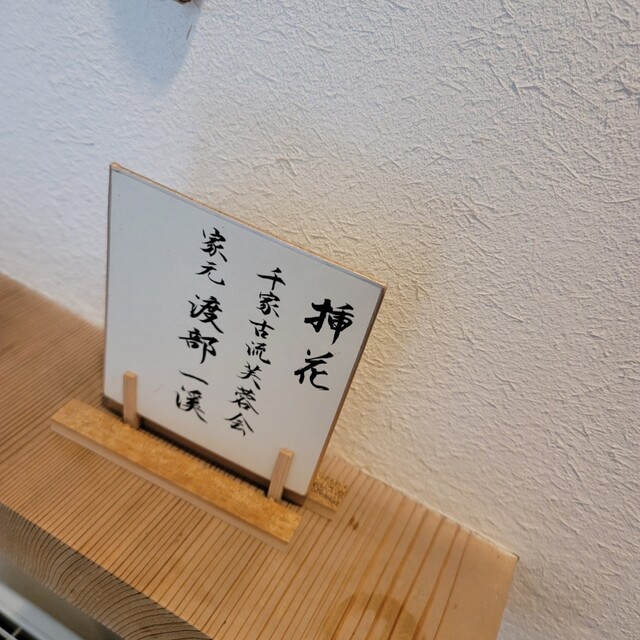 挿花
千家古流芙蓉会
家元 渡部一溪